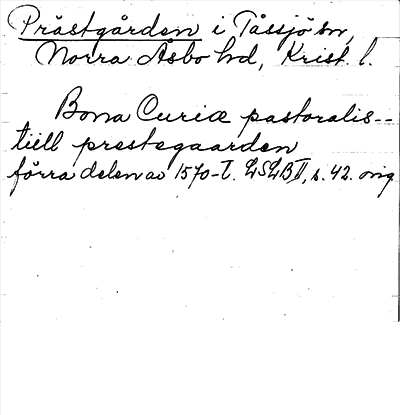 Prästgården i Tåssjö sn,
Norra Åsbo hd, Krist. l.
Bona Curiæ pastoralis --
tiill prestegaarden
förra delen av 1570-t. LSLB II, s. 42. orig